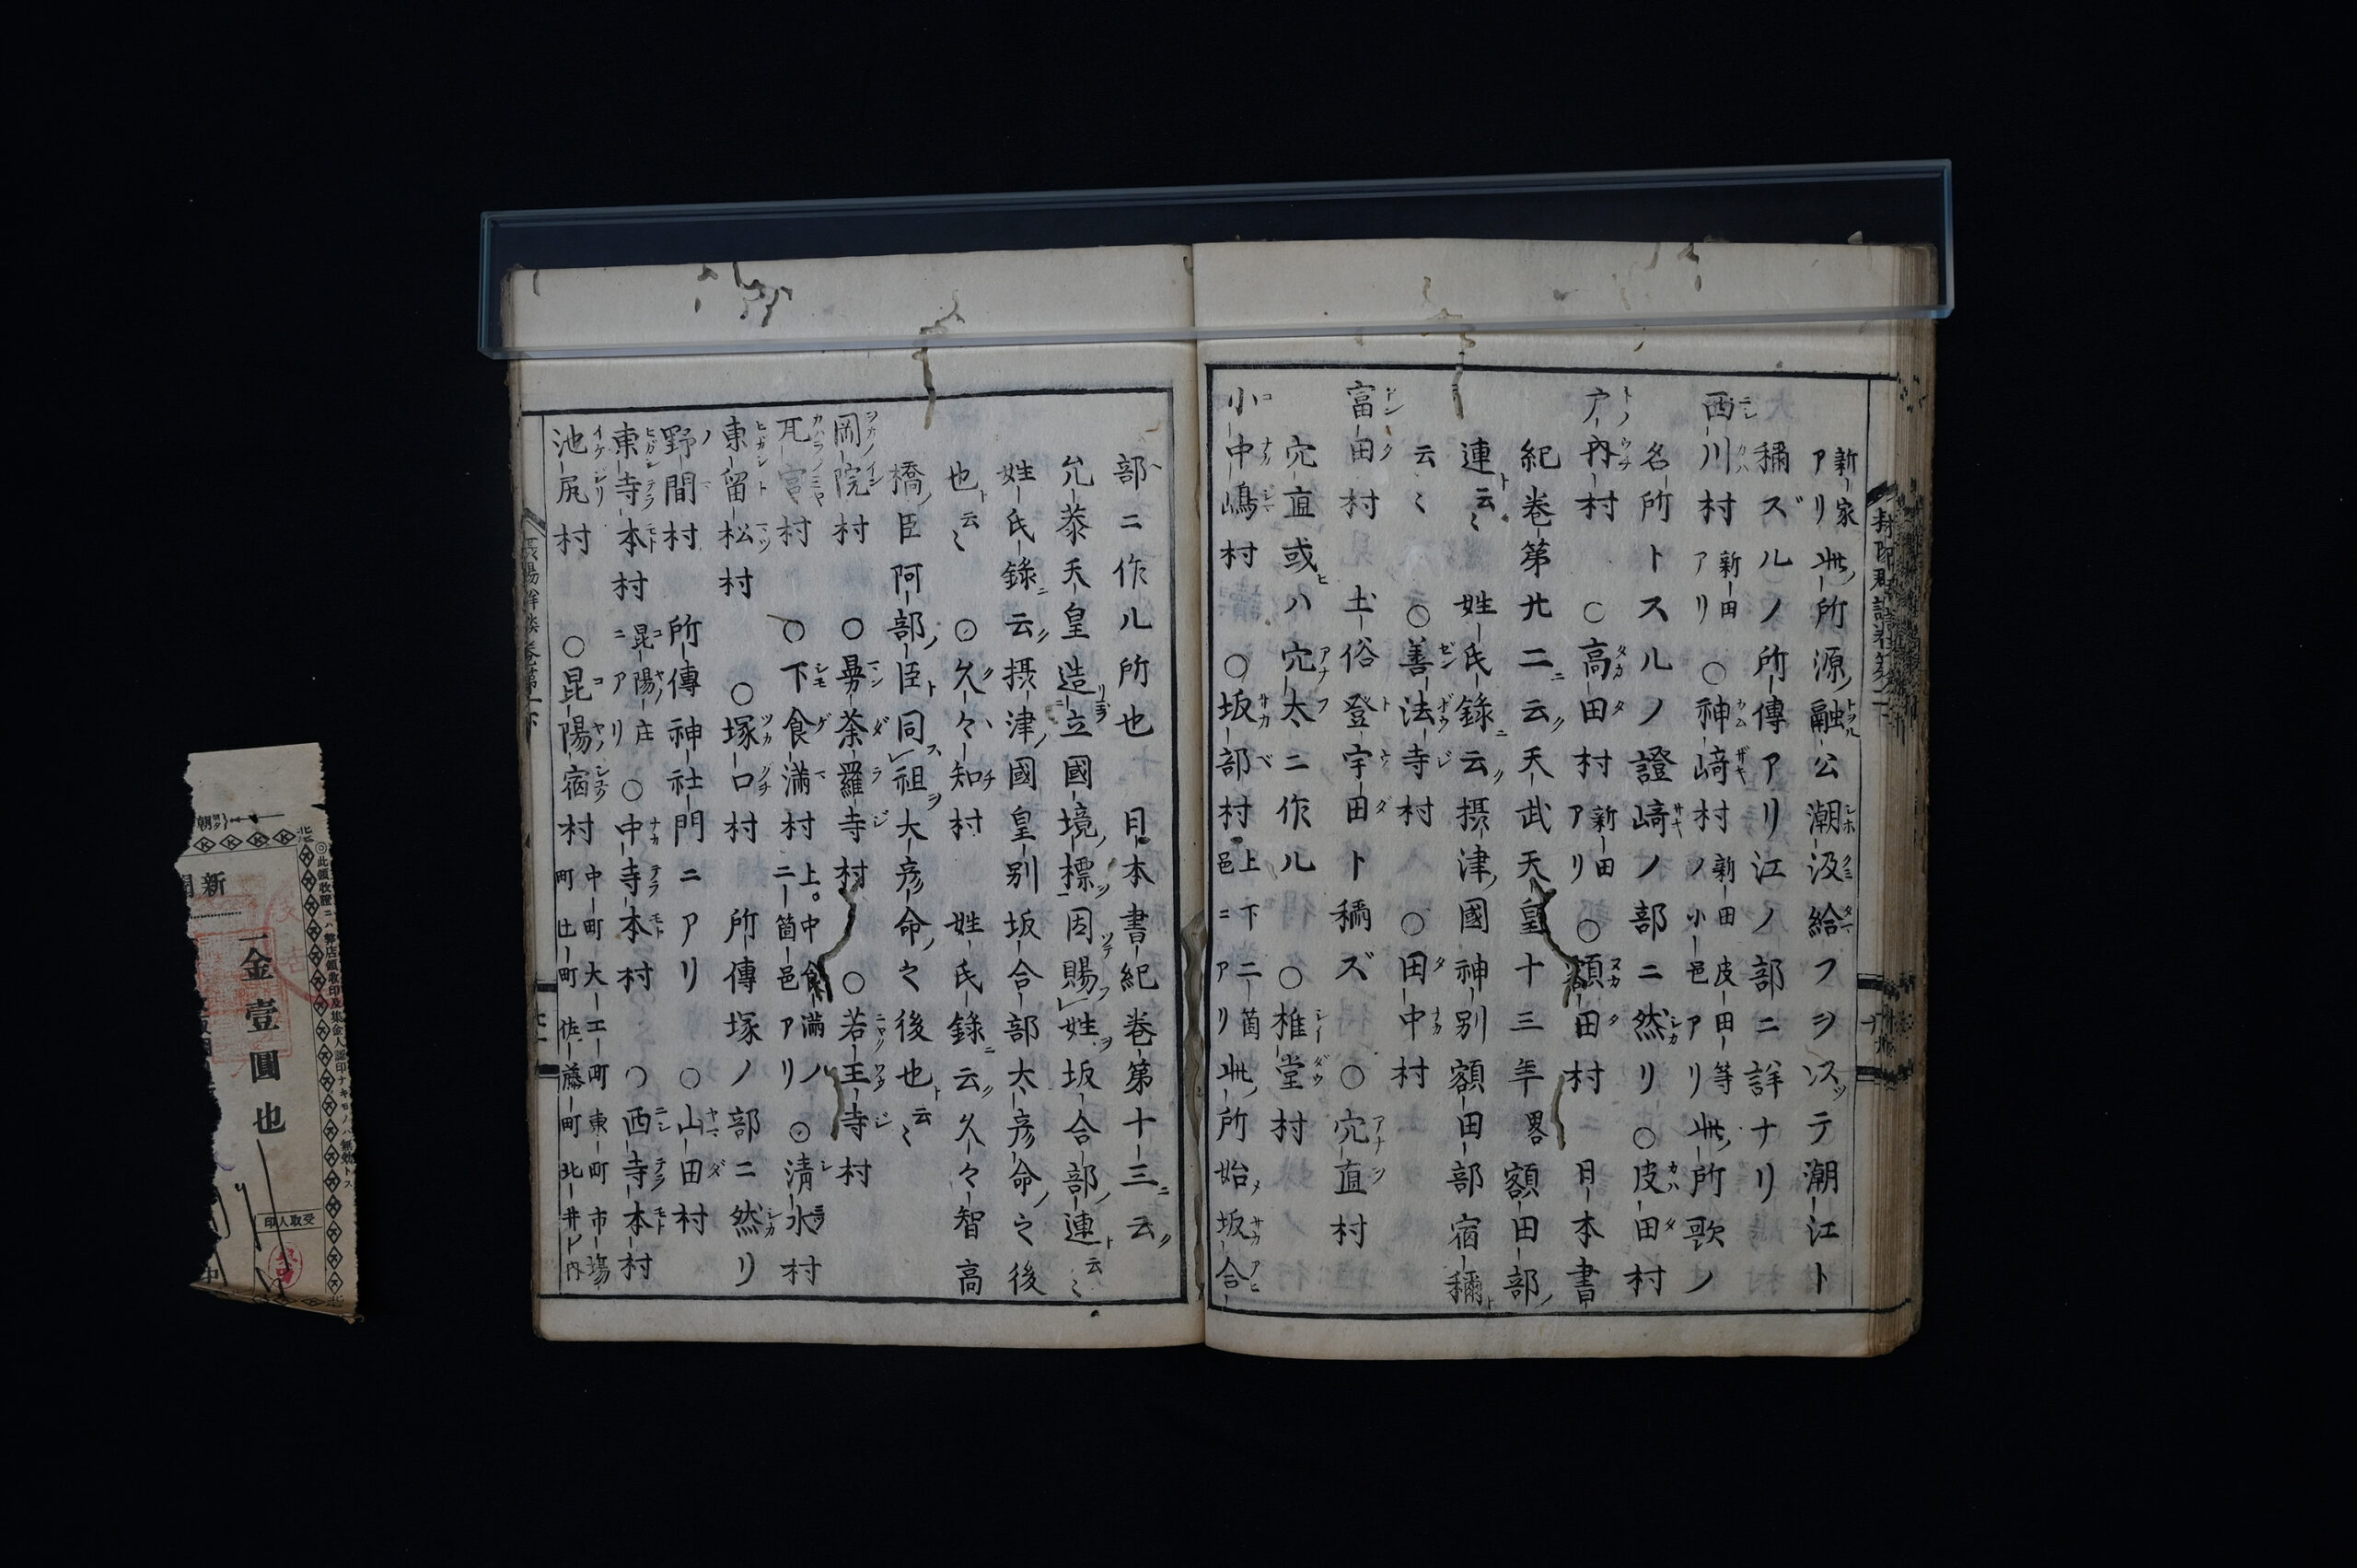 新家
アリ 此所源融公潮汲給フヲソスッテ潮江ト
稱ズルノ所傳アリ江ノ部ニ詳ナリ
西川村 新田アリ ○神﨑村 新田皮田等ノ小邑アリ 此所歌ノ
名所トスルノ證﨑ノ部ニ然リ ○皮田村
戸内村 ○高田村 新田アリ ○額田村 日本書
紀巻第廿二云天武天皇十三年畧額田部
連云〻 姓氏錄云摂津國神別額田部宿稱
云〻 ○善法寺村 ○田中村
富田村 土俗登宇田ト稱ズ ○穴直村
穴直或ハ穴太ニ作ル ○椎堂村
小中嶋村 ○坂部村 上下二箇邑ニアリ 此所始坂合
部ニ作ル所也 日本書紀巻第十三云
允恭天皇造立國境標因賜姓坂合部連云〻
姓氏錄云摂津國皇別坂合部大彦命之後
也云〻 ○久々知村 姓氏錄云久々智高
橋臣阿部臣同祖大彦命之後也云〻
岡院村 ○曼荼羅寺村 ○若王寺村
瓦宮村 ○下食満村 上。中食満ノ二箇邑アリ ○清水村
東留松村 ○塚口村 所傳塚ノ部ニ然リ
野間村 所傳神社門ニアリ ○山田村
東寺本村 昆陽庄ニアリ ○中寺本村 ○西寺本村
池尻村 ○昆陽宿村 中町大工町東町市場町辻町佐藤町北井ト内
一金壹圓也
新
朝
受取人印
◎此領收證ニハ弊店領收印及集金人認印ナキモノハ無効トス